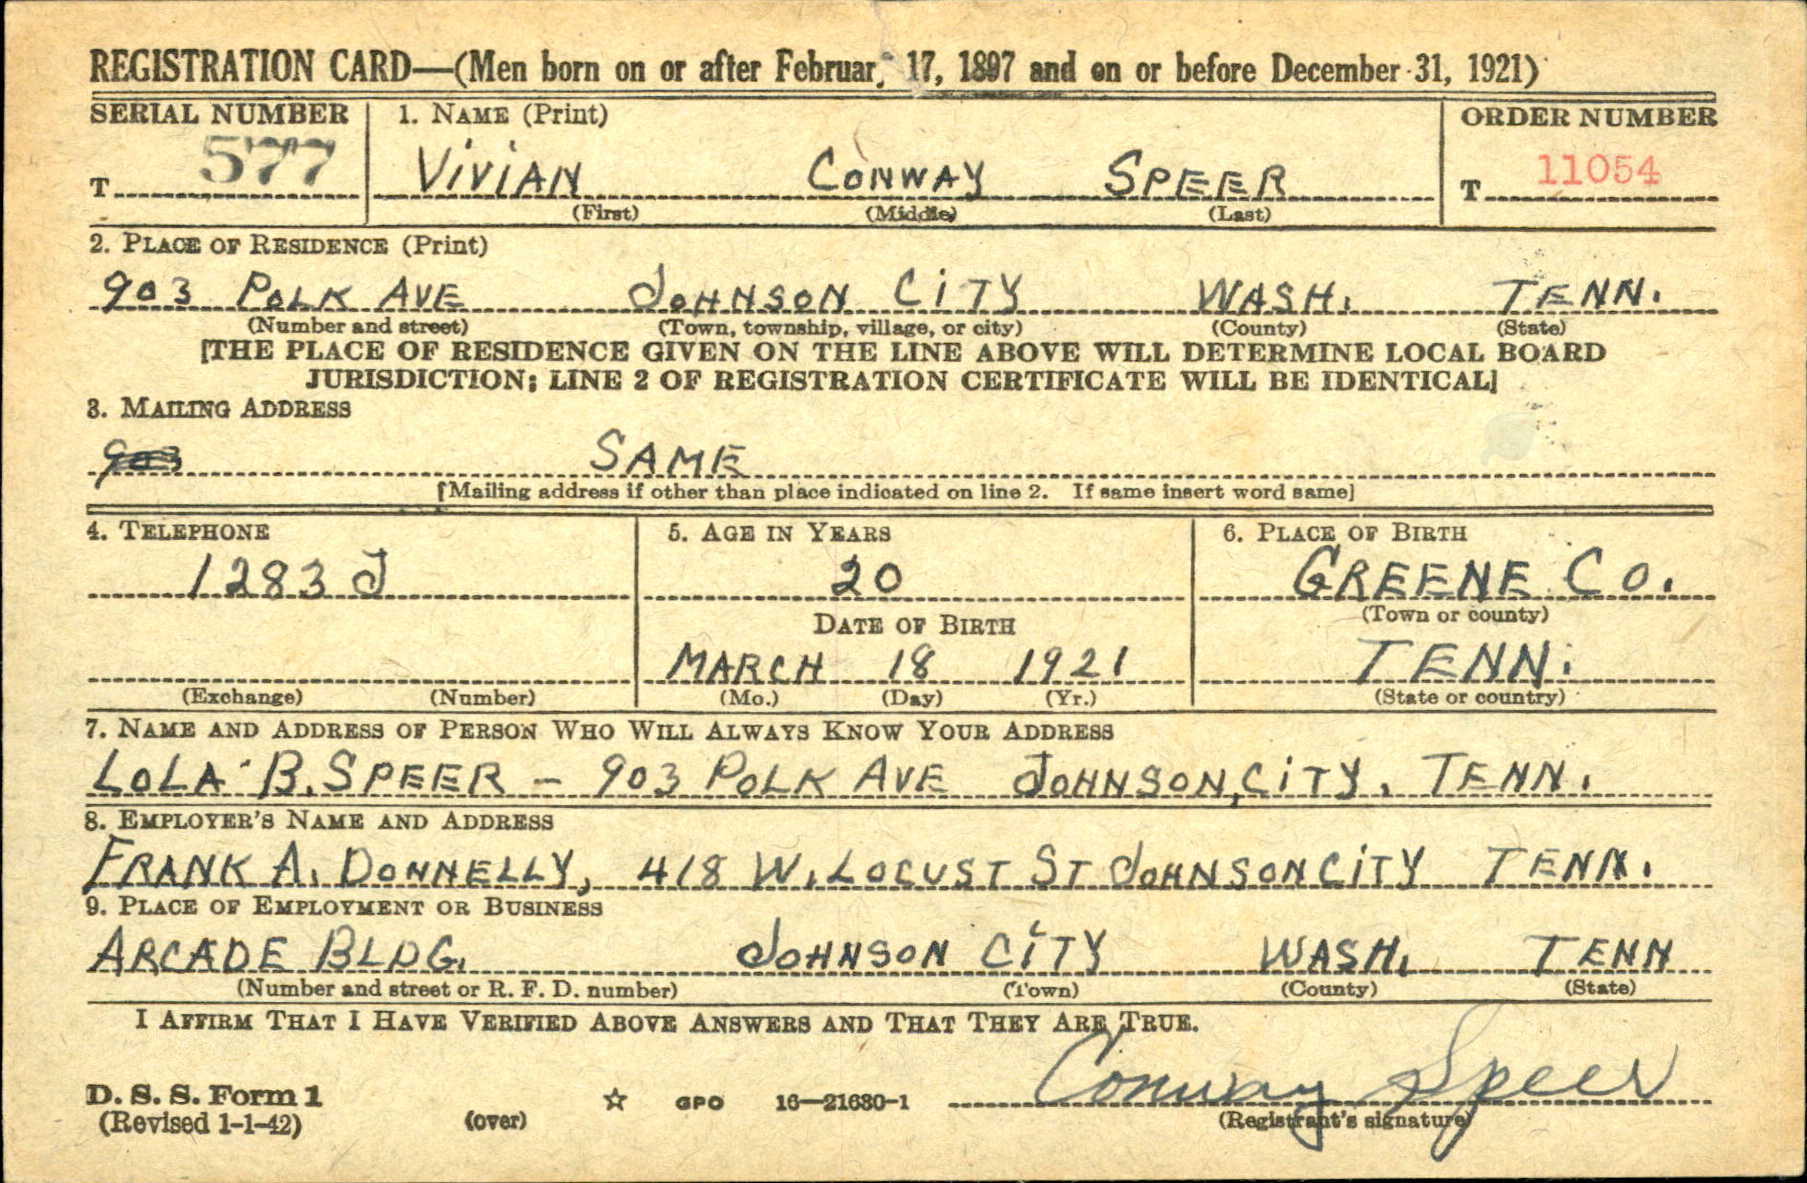 REGISTRATION CARD—(Men born on or after Februar, 17, 1897 and on or before December 31, 1921)
SERIAL NUMBER 1. NAME (Print) ORDER NUMBER
T 577 VIVIAN CONWAY SPEER T 11054
(First) (Middle) (Last)
2. PLACE OF RESIDENCE (Print)
903 POLK AVE JOHNSON CITY WASH. TENN.
(Number and street) (Town, township, village, or city) (County) (State)
[THE PLACE OF RESIDENCE GIVEN ON THE LINE ABOVE WILL DETERMINE LOCAL BOARD
JURISDICTION; LINE 2 OF REGISTRATION CERTIFICATE WILL BE IDENTICAL]
3. MAILING ADDRESS
903 SAME
[Mailing address if other than place indicated on line 2. If same insert word same]
4. TELEPHONE 5. AGE IN YEARS 6. PLACE OF BIRTH
1283 J 20 GREENE CO.
(Town or county)
DATE OF BIRTH
MARCH 18 1921 TENN.
(Exchange) (Number) (Mo.) (Day) (Yr.) (State or country)
7. NAME AND ADDRESS OF PERSON WHO WILL ALWAYS KNOW YOUR ADDRESS
LOLA B. SPEER - 903 POLK AVE JOHNSON, CITY, TENN.
8. EMPLOYER'S NAME AND ADDRESS
FRANK A. DONNELLY, 418 W. LOCUST ST JOHNSON CITY TENN.
9. PLACE OF EMPLOYMENT OR BUSINESS
ARCADE BLDG. JOHNSON CITY WASH. TENN
(Number and street or R. F. D. number) (Town) (County) (State)
I AFFIRM THAT I HAVE VERIFIED ABOVE ANSWERS AND THAT THEY ARE TRUE.
Conway Speer
D. S. S. Form 1 ☆ GPO 16—21630-1
(Revised 1-1-42) (over) (Registrant's signature)